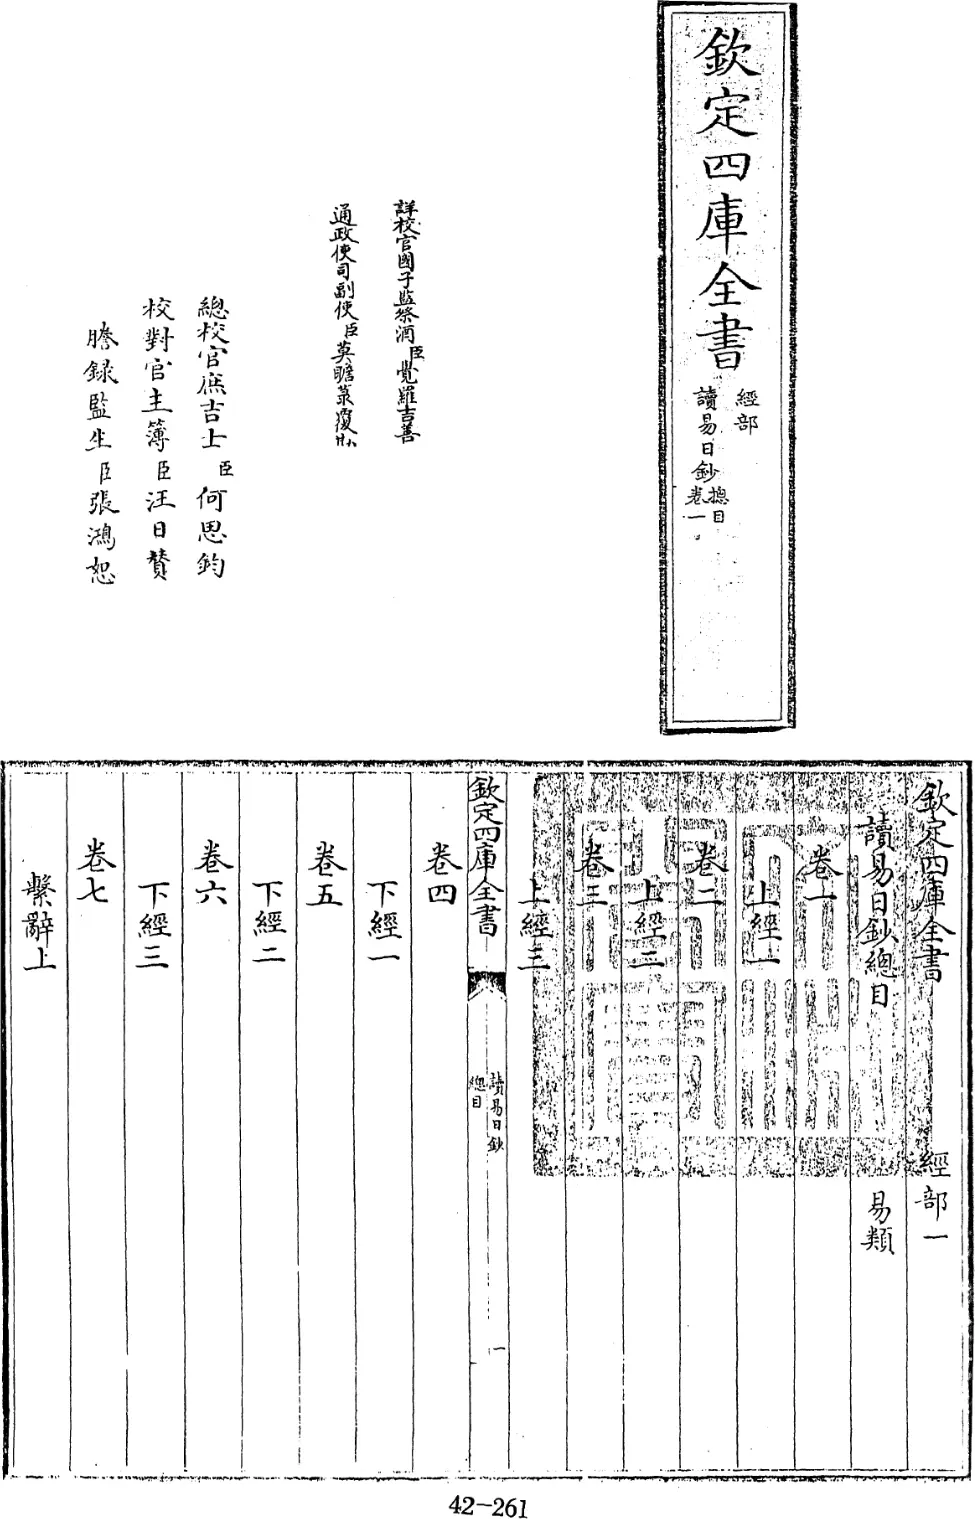 欽定四庫全書
經部
讀易日鈔
總目
卷一
詳校官國子監祭酒臣覺羅吉善
通政使司副使臣莫瞻菉覆勘
總校官庶吉士臣何思鈞
校對官主簿臣汪日贊
謄錄監生臣張鴻恕
欽定四庫全書
經部一
讀易日鈔總目
易類
卷一
上經一
卷二
上經二
卷三
上經三
欽定四庫全書
讀易日鈔
總目
一
卷四
下經一
卷五
下經二
卷六
下經三
卷七
繫辭上
42-261